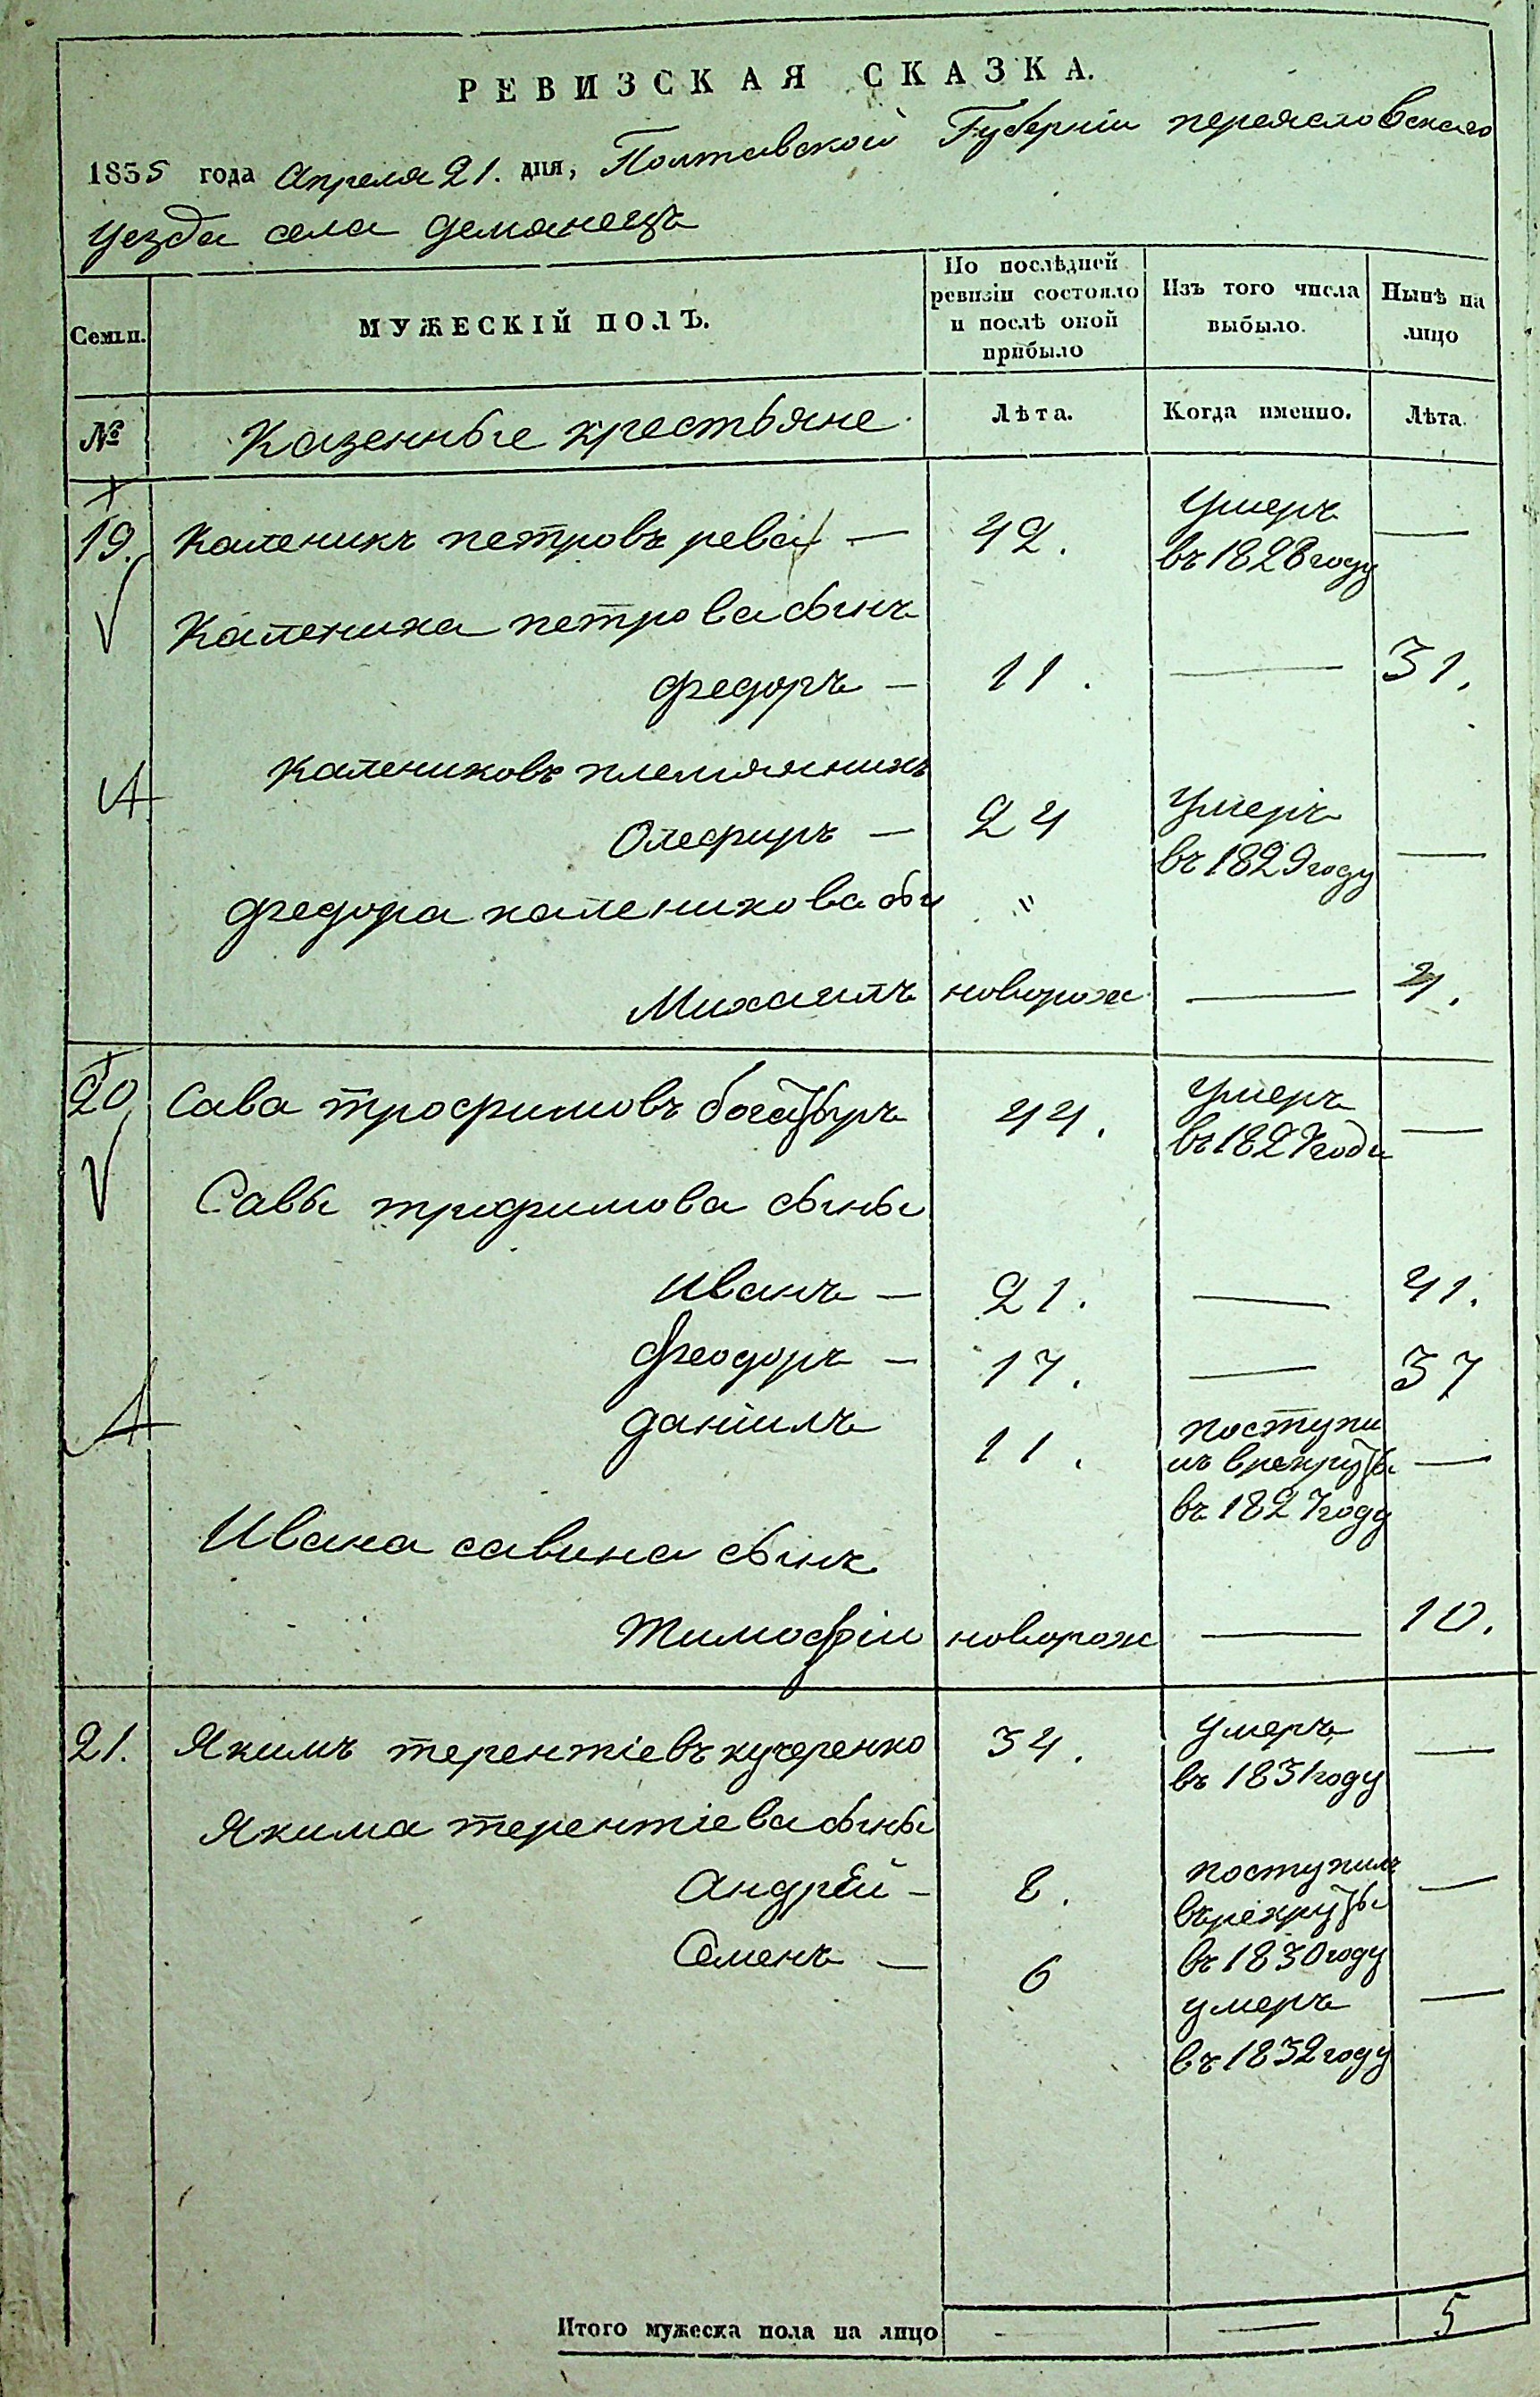 РЕВИЗСКАЯ СКАЗКА.
1835 года Апреля 21. дня, Полтавской Губерніи переясловскаго
уезда села Деманецъ
Семьи.
МУЖЕСКІЙ ПОЛЪ.
По послѣдней ревизіи состояло и послѣ оной прибыло
Изъ того числа выбыло.
Нынѣ на лицо
№
Казенные крестьяне
Лѣта.
Когда именно.
Лѣта.
19. Каленикъ петровъ рева — 42. умеръ въ 1828 году —
Каленика петрова сынъ
федоръ — 11. — 31.
калениковъ племянникъ
Олефиръ — 24 умеръ въ 1829 году —
федора каленикова сы "
Михаилъ новорож — 4.
20 Сава трофимовъ богатыръ 44. умеръ въ 1827 годи —
Савы трофимова сыны
иванъ — 21. — 41.
феодоръ — 17. — 37
даніилъ 11. поступи
лъ врекруты —
въ 1827 году
Ивана савина сынъ
тимофіи новорож — 10.
21. Якимъ терентіевъ кучеренко 34. умеръ въ 1831 году —
Якима терентіева сыны
Андрей — 8. поступилъ
въ рекруты —
въ 1830 году
Семенъ — 6 умеръ —
въ 1832 году
Итого мужеска пола на лицо — — 5